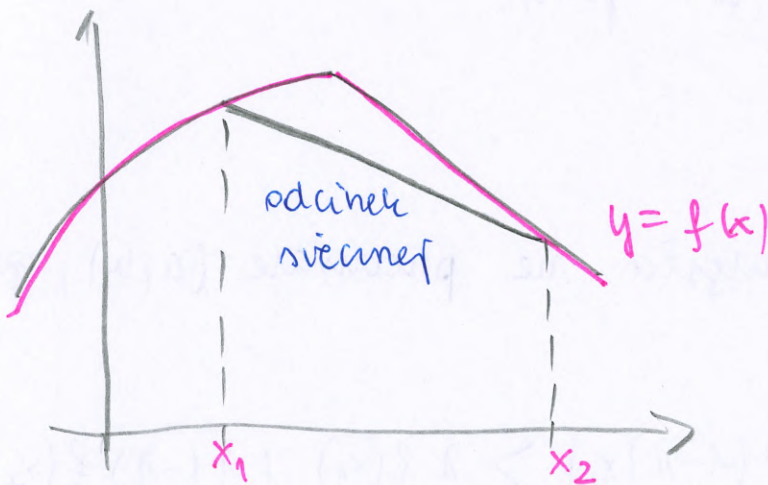 odcinek
siecznej
y = f(x)
x₁
x₂